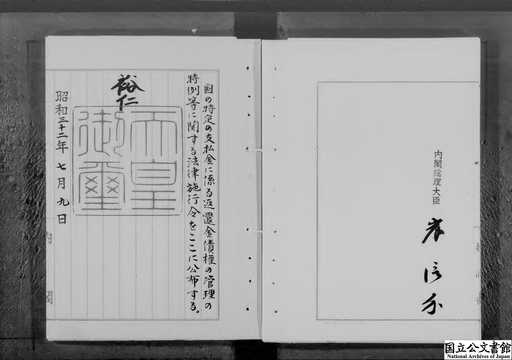 国の特定の支払金に係る返還金債権の管理の
特例等に関する法律施行令をここに公布する。
裕仁
天皇
御璽
昭和三十二年七月九日
内閣
内閣総理大臣
岸信介
国立公文書館
National Archives of Japan